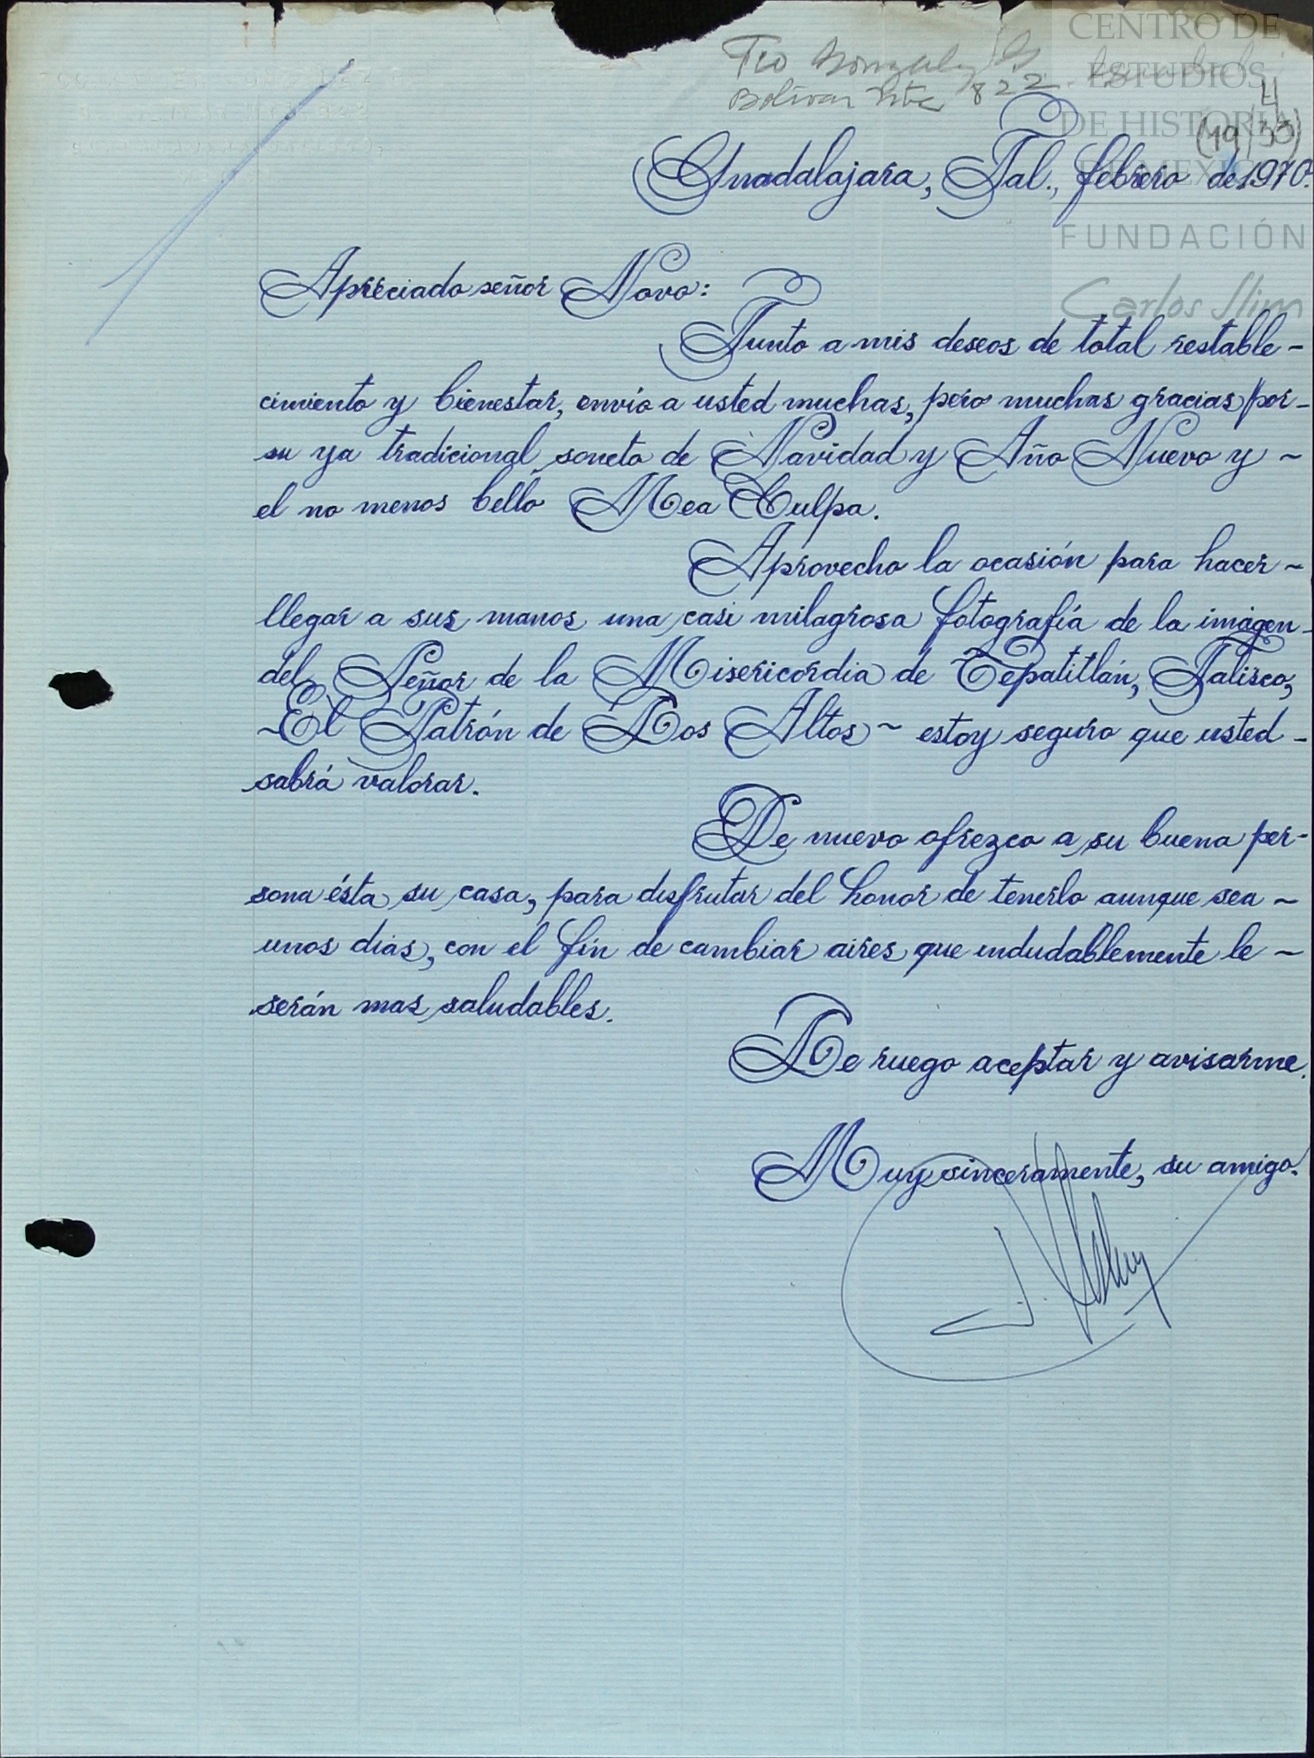 CENTRO DE
ESTUDIOS
DE HISTORIA
DE MEXICO
FUNDACIÓN
Carlos Slim
Bolívar 822
Guadalajara, Jal., febrero de 1970.
Apreciado señor Novo:
Junto a mis deseos de total restable-
cimiento y bienestar, envío a usted muchas, pero muchas gracias por-
su ya tradicional soneto de Navidad y Año Nuevo y -
el no menos bello Mea Culpa.
Aprovecho la ocasión para hacer-
llegar a sus manos una casi milagrosa fotografía de la imágen-
del Señor de la Misericordia de Tepatitlán, Jalisco,
-El Patrón de Los Altos- estoy seguro que usted -
sabrá valorar.
De nuevo ofrezco a su buena per-
sona ésta su casa, para disfrutar del honor de tenerlo aunque sea -
unos dias, con el fin de cambiar aires que indudablemente le -
serán mas saludables.
Le ruego aceptar y avisarme.
Muy sinceramente, su amigo.